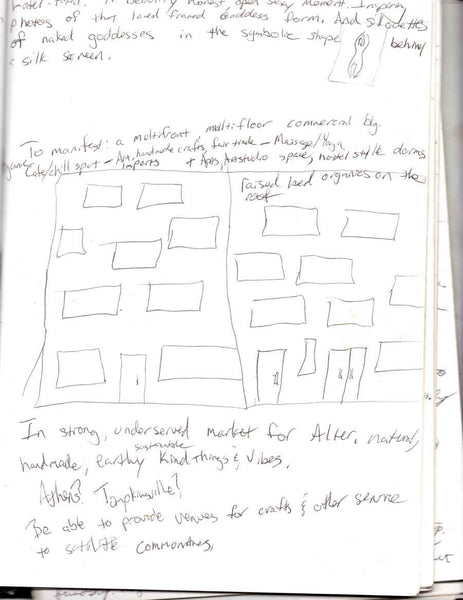 honest open sexy moment. Inspiring
photos of that loved framed Goddess form. And silouettes
of naked goddesses in the symbolic shape behind
a silk screen.
To manifest: a multifront, multifloor commercial blg.
Organic
Cafe/chill spot - Art, handmade crafts, fair trade - Massage/Yoga
imports + Apts, Art studio space, hostel style dorms
raised bed organics on the
roof
In strong, underserved market for Alter, natural,
sustainable
handmade, earthy Kind Things & Vibes.
Athens? Tompkinsville?
Be able to provide venues for crafts & other service
to satelite communities.